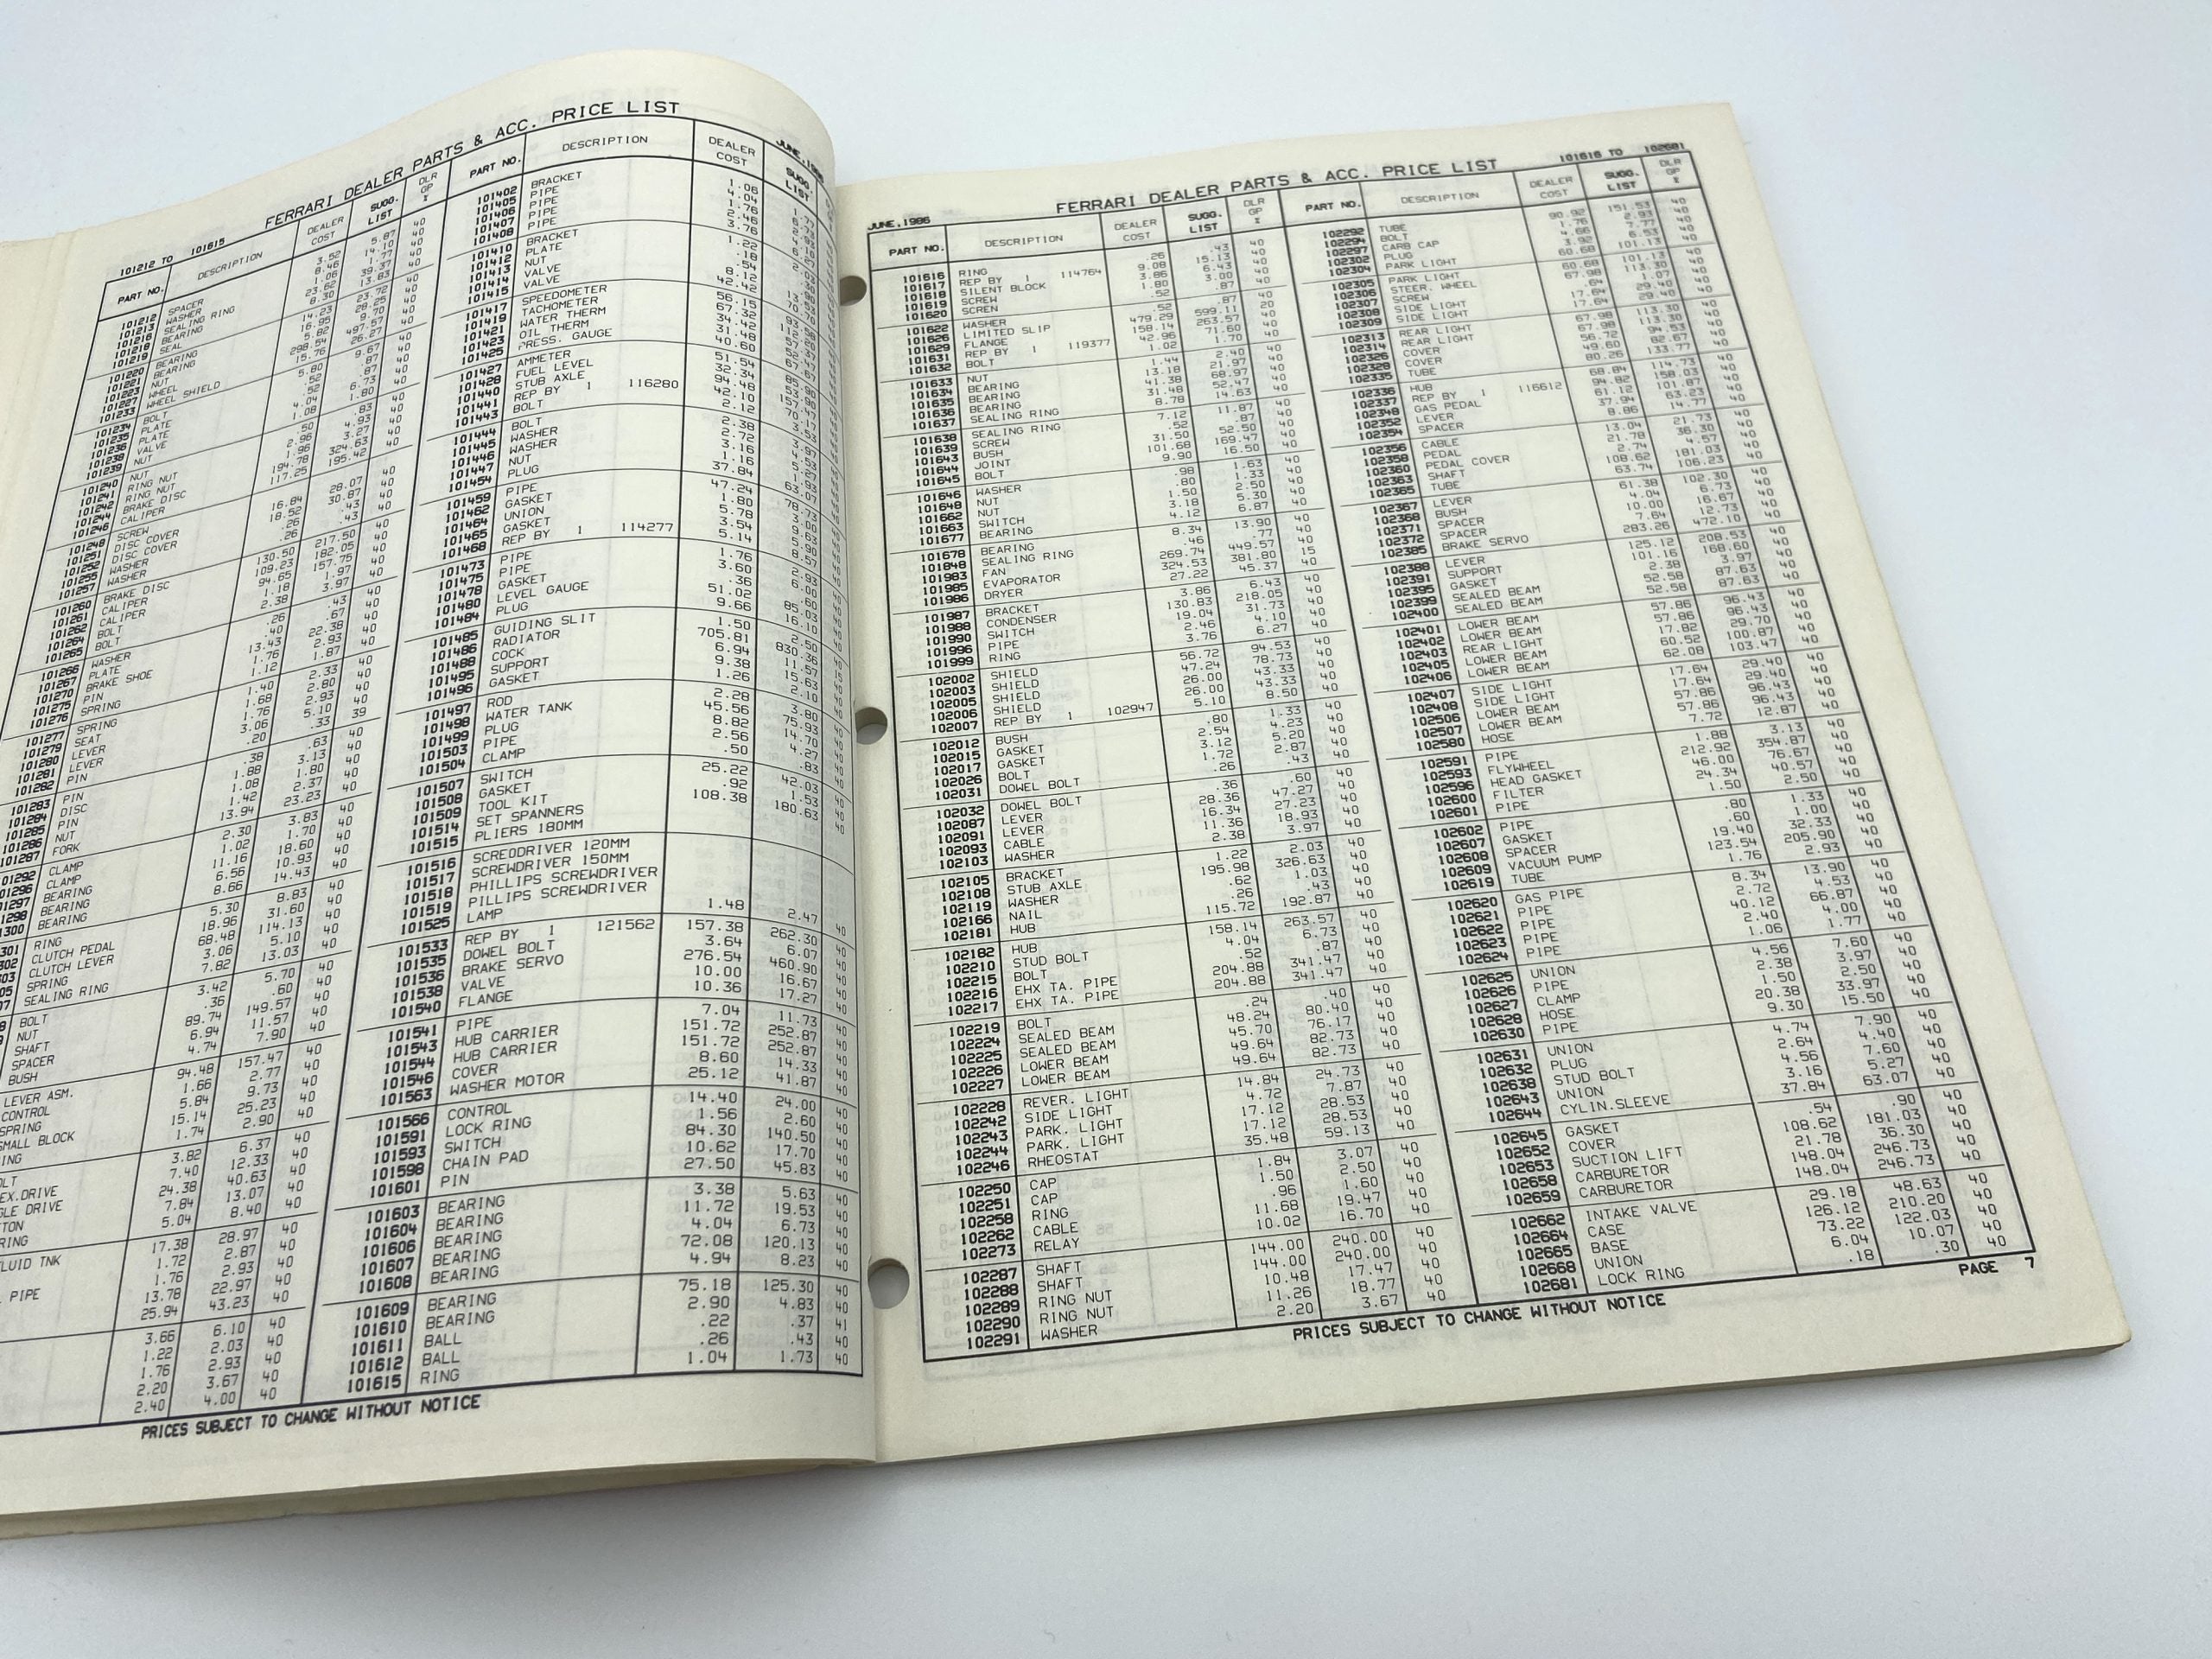 101212 TO 101615 FERRARI DEALER PARTS & ACC. PRICE LIST JUNE,1986
PART NO. DESCRIPTION DEALER COST SUGG. LIST DLR GP %
101212 SPACER 3.52 5.87 40
101213 WASHER 8.46 14.10 40
101216 SEALING RING 1.06 1.77 40
101218 BEARING 23.62 39.37 40
101219 SEAL 8.30 13.83 40
101220 BEARING 14.23 23.72 40
101221 BEARING 16.95 28.25 40
101223 NUT 5.82 9.70 40
101227 WHEEL 298.54 497.57 40
101233 WHEEL SHIELD 15.76 26.27 40
101234 BOLT 5.80 9.67 40
101235 PLATE .52 .87 40
101236 PLATE .52 .87 40
101238 VALVE 4.04 6.73 40
101239 NUT 1.08 1.80 40
101240 NUT .50 .83 40
101241 RING NUT 2.96 4.93 40
101242 RING NUT 1.96 3.27 40
101244 BRAKE DISC 194.78 324.63 40
101246 CALIPER 117.25 195.42 40
101248 SCREW
101251 DISC COVER 16.84 28.07 40
101252 DISC COVER 18.52 30.87 40
101255 WASHER .26 .43 40
101257 WASHER .26 .43 40
101260 BRAKE DISC 130.50 217.50 40
101261 CALIPER 109.23 182.05 40
101262 CALIPER 94.65 157.75 40
101264 BOLT 1.18 1.97 40
101265 BOLT 2.38 3.97 40
101266 WASHER .26 .43 40
101267 PLATE .40 .67 40
101270 BRAKE SHOE 13.43 22.38 40
101275 PIN 1.76 2.93 40
101276 SPRING 1.12 1.87 40
101277 SPRING 1.40 2.33 40
101279 SEAT 1.68 2.80 40
101280 LEVER 1.76 2.93 40
101281 LEVER 3.06 5.10 40
101282 PIN .20 .33 39
101283 PIN .38 .63 40
101284 DISC 1.88 3.13 40
101285 PIN 1.08 1.80 40
101286 NUT 1.42 2.37 40
101287 FORK 13.94 23.23 40
01292 CLAMP 2.30 3.83 40
01296 CLAMP 1.02 1.70 40
01297 BEARING 11.16 18.60 40
1298 BEARING 6.56 10.93 40
1300 BEARING 8.66 14.43 40
301 RING 5.30 8.83 40
302 CLUTCH PEDAL 18.96 31.60 40
03 CLUTCH LEVER 68.48 114.13 40
05 SPRING 3.06 5.10 40
07 SEALING RING 7.82 13.03 40
BOLT 3.42 5.70 40
NUT .36 .60 40
SHAFT 89.74 149.57 40
SPACER 6.94 11.57 40
BUSH 4.74 7.90 40
LEVER ASM. 94.48 157.47 40
CONTROL 1.66 2.77 40
SPRING 5.84 9.73 40
SMALL BLOCK 15.14 25.23 40
ING 1.74 2.90 40
OLT 3.82 6.37 40
EX.DRIVE 7.40 12.33 40
GLE DRIVE 24.38 40.63 40
TON 7.84 13.07 40
RING 5.04 8.40 40
LUID TNK 17.38 28.97 40
1.72 2.87 40
PIPE 1.76 2.93 40
13.78 22.97 40
25.94 43.23 40
3.66 6.10 40
1.22 2.03 40
1.76 2.93 40
2.20 3.67 40
2.40 4.00 40
PART NO. DESCRIPTION DEALER COST SUGG. LIST
101402 BRACKET 1.06
101405 PIPE 4.04
101406 PIPE 1.76
101407 PIPE 2.46
101408 PIPE 3.76
101410 BRACKET 1.22
101412 PLATE .18
101413 NUT .54
101414 VALVE 8.12
101415 VALVE 42.42
101417 SPEEDOMETER 56.15
101419 TACHOMETER 67.32
101421 WATER THERM 34.42
101423 OIL THERM 31.48
101425 PRESS. GAUGE 40.60
101427 AMMETER 51.54
101428 FUEL LEVEL 32.34
101440 STUB AXLE 94.48
101441 REP BY 1 116280 42.10
101443 BOLT 2.12 3.53
101444 BOLT 2.38 3.97
101445 WASHER 2.72 4.53
101446 WASHER 3.16 5.27
101447 NUT 1.16 1.93
101454 PLUG 37.84 63.07
101459 PIPE 47.24 78.73
101462 GASKET 1.80 3.00
101464 UNION 5.78 9.63
101465 GASKET 3.54 5.90
101468 REP BY 1 114277 5.14 8.57
101473 PIPE 1.76 2.93 40
101475 PIPE 3.60 6.00 40
101478 GASKET .36 .60 40
101480 LEVEL GAUGE 51.02 85.03 40
101484 PLUG 9.66 16.10 40
101485 GUIDING SLIT 1.50 2.50 40
101486 RADIATOR 705.81 830.36 15
101488 COCK 6.94 11.57 40
101495 SUPPORT 9.38 15.63 40
101496 GASKET 1.26 2.10 40
101497 ROD 2.28 3.80 40
101498 WATER TANK 45.56 75.93 40
101499 PLUG 8.82 14.70 40
101503 PIPE 2.56 4.27 40
101504 CLAMP .50 .83 40
101507 SWITCH 25.22 42.03 40
101508 GASKET .92 1.53 40
101509 TOOL KIT 108.38 180.63 40
101514 SET SPANNERS
101515 PLIERS 180MM
101516 SCREDDRIVER 120MM
101517 SCREWDRIVER 150MM
101518 PHILLIPS SCREWDRIVER
101519 PILLIPS SCREWDRIVER
101525 LAMP 1.48 2.47 40
101533 REP BY 1 121562 157.38 262.30 40
101535 DOWEL BOLT 3.64 6.07 40
101536 BRAKE SERVO 276.54 460.90 40
101538 VALVE 10.00 16.67 40
101540 FLANGE 10.36 17.27 40
101541 PIPE 7.04 11.73 40
101543 HUB CARRIER 151.72 252.87 40
101544 HUB CARRIER 151.72 252.87 40
101546 COVER 8.60 14.33 40
101563 WASHER MOTOR 25.12 41.87 40
101566 CONTROL 14.40 24.00 40
101591 LOCK RING 1.56 2.60 40
101593 SWITCH 84.30 140.50 40
101598 CHAIN PAD 10.62 17.70 40
101601 PIN 27.50 45.83 40
101603 BEARING 3.38 5.63 40
101604 BEARING 11.72 19.53 40
101606 BEARING 4.04 6.73 40
101607 BEARING 72.08 120.13 40
101608 BEARING 4.94 8.23 40
101609 BEARING 75.18 125.30 40
101610 BEARING 2.90 4.83 40
101611 BALL .22 .37 41
101612 BALL .26 .43 40
101615 RING 1.04 1.73 40
PRICES SUBJECT TO CHANGE WITHOUT NOTICE
JUNE,1986 FERRARI DEALER PARTS & ACC. PRICE LIST 101616 TO 102681
PART NO. DESCRIPTION DEALER COST SUGG. LIST DLR GP %
101616 RING .26 .43 40
101617 REP BY 1 114764 9.08 15.13 40
101618 SILENT BLOCK 3.86 6.43 40
101619 SCREW 1.80 3.00 40
101620 SCREN .52 .87 40
101622 WASHER .52 .87 40
101626 LIMITED SLIP 479.29 599.11 20
101629 FLANGE 158.14 263.57 40
101631 REP BY 1 119377 42.96 71.60 40
101632 BOLT 1.02 1.70 40
101633 NUT 1.44 2.40 40
101634 BEARING 13.18 21.97 40
101635 BEARING 41.38 68.97 40
101636 BEARING 31.48 52.47 40
101637 SEALING RING 8.78 14.63 40
101638 SEALING RING 7.12 11.87 40
101639 SCREW .52 .87 40
101643 BUSH 31.50 52.50 40
101644 JOINT 101.68 169.47 40
101645 BOLT 9.90 16.50 40
101646 WASHER .98 1.63 40
101648 NUT .80 1.33 40
101662 NUT 1.50 2.50 40
101663 SWITCH 3.18 5.30 40
101677 BEARING 4.12 6.87 40
101678 BEARING 8.34 13.90 40
101848 SEALING RING .46 .77 40
101983 FAN 269.74 449.57 40
101985 EVAPORATOR 324.53 381.80 15
101986 DRYER 27.22 45.37 40
101987 BRACKET 3.86 6.43 40
101988 CONDENSER 130.83 218.05 40
101990 SWITCH 19.04 31.73 40
101996 PIPE 2.46 4.10 40
101999 RING 3.76 6.27 40
102002 SHIELD 56.72 94.53 40
102003 SHIELD 47.24 78.73 40
102005 SHIELD 26.00 43.33 40
102006 SHIELD 26.00 43.33 40
102007 REP BY 1 102947 5.10 8.50 40
102012 BUSH .80 1.33 40
102015 GASKET 2.54 4.23 40
102017 GASKET 3.12 5.20 40
102026 BOLT 1.72 2.87 40
102031 DOWEL BOLT .26 .43 40
102032 DOWEL BOLT .36 .60 40
102087 LEVER 28.36 47.27 40
102091 LEVER 16.34 27.23 40
102093 CABLE 11.36 18.93 40
102103 WASHER 2.38 3.97 40
102105 BRACKET 1.22 2.03 40
102108 STUB AXLE 195.98 326.63 40
102119 WASHER .62 1.03 40
102166 NAIL .26 .43 40
102181 HUB 115.72 192.87 40
102182 HUB 158.14 263.57 40
102210 STUD BOLT 4.04 6.73 40
102215 BOLT .52 .87 40
102216 EHX TA. PIPE 204.88 341.47 40
102217 EHX TA. PIPE 204.88 341.47 40
102219 BOLT .24 .40 40
102224 SEALED BEAM 48.24 80.40 40
102225 SEALED BEAM 45.70 76.17 40
102226 LOWER BEAM 49.64 82.73 40
102227 LOWER BEAM 49.64 82.73 40
102228 REVER. LIGHT 14.84 24.73 40
102242 SIDE LIGHT 4.72 7.87 40
102243 PARK. LIGHT 17.12 28.53 40
102244 PARK. LIGHT 17.12 28.53 40
102246 RHEOSTAT 35.48 59.13 40
102250 CAP 1.84 3.07 40
102251 CAP 1.50 2.50 40
102258 RING .96 1.60 40
102262 CABLE 11.68 19.47 40
102273 RELAY 10.02 16.70 40
102287 SHAFT 144.00 240.00 40
102288 SHAFT 144.00 240.00 40
102289 RING NUT 10.48 17.47 40
102290 RING NUT 11.26 18.77 40
102291 WASHER 2.20 3.67 40
PART NO. DESCRIPTION DEALER COST SUGG. LIST DLR GP %
102292 TUBE 90.92 151.53 40
102294 BOLT 1.76 2.93 40
102297 CARB CAP 4.66 7.77 40
102302 PLUG 3.92 6.53 40
102304 PARK LIGHT 60.68 101.13 40
102305 PARK LIGHT 60.68 101.13 40
102306 STEER. WHEEL 67.98 113.30 40
102307 SCREW .64 1.07 40
102308 SIDE LIGHT 17.64 29.40 40
102309 SIDE LIGHT 17.64 29.40 40
102313 REAR LIGHT 67.98 113.30 40
102314 REAR LIGHT 67.98 113.30 40
102326 COVER 56.72 94.53 40
102328 COVER 49.60 82.67 40
102335 TUBE 80.26 133.77 40
102336 HUB 68.84 114.73 40
102337 REP BY 1 116612 94.82 158.03 40
102348 GAS PEDAL 61.12 101.87 40
102352 LEVER 37.94 63.23 40
102354 SPACER 8.86 14.77 40
102356 CABLE 13.04 21.73 40
102358 PEDAL 21.78 36.30 40
102360 PEDAL COVER 2.74 4.57 40
102363 SHAFT 108.62 181.03 40
102365 TUBE 63.74 106.23 40
102367 LEVER 61.38 102.30 40
102368 BUSH 4.04 6.73 40
102371 SPACER 10.00 16.67 40
102372 SPACER 7.64 12.73 40
102385 BRAKE SERVO 283.26 472.10 40
102388 LEVER 125.12 208.53 40
102391 SUPPORT 101.16 168.60 40
102395 GASKET 2.38 3.97 40
102399 SEALED BEAM 52.58 87.63 40
102400 SEALED BEAM 52.58 87.63 40
102401 LOWER BEAM 57.86 96.43 40
102402 LOWER BEAM 57.86 96.43 40
102403 REAR LIGHT 17.82 29.70 40
102405 LOWER BEAM 60.52 100.87 40
102406 LOWER BEAM 62.08 103.47 40
102407 SIDE LIGHT 17.64 29.40 40
102408 SIDE LIGHT 17.64 29.40 40
102506 LOWER BEAM 57.86 96.43 40
102507 LOWER BEAM 57.86 96.43 40
102580 HOSE 7.72 12.87 40
102591 PIPE 1.88 3.13 40
102593 FLYWHEEL 212.92 354.87 40
102596 HEAD GASKET 46.00 76.67 40
102600 FILTER 24.34 40.57 40
102601 PIPE 1.50 2.50 40
102602 PIPE .80 1.33 40
102607 GASKET .60 1.00 40
102608 SPACER 19.40 32.33 40
102609 VACUUM PUMP 123.54 205.90 40
102619 TUBE 1.76 2.93 40
102620 GAS PIPE 8.34 13.90 40
102621 PIPE 2.72 4.53 40
102622 PIPE 40.12 66.87 40
102623 PIPE 2.40 4.00 40
102624 PIPE 1.06 1.77 40
102625 UNION 4.56 7.60 40
102626 PIPE 2.38 3.97 40
102627 CLAMP 1.50 2.50 40
102628 HOSE 20.38 33.97 40
102630 PIPE 9.30 15.50 40
102631 UNION 4.74 7.90 40
102632 PLUG 2.64 4.40 40
102638 STUD BOLT 4.56 7.60 40
102643 UNION 3.16 5.27 40
102644 CYLIN.SLEEVE 37.84 63.07 40
102645 GASKET .54 .90 40
102652 COVER 108.62 181.03 40
102653 SUCTION LIFT 21.78 36.30 40
102658 CARBURETOR 148.04 246.73 40
102659 CARBURETOR 148.04 246.73 40
102662 INTAKE VALVE 29.18 48.63 40
102664 CASE 126.12 210.20 40
102665 BASE 73.22 122.03 40
102668 UNION 6.04 10.07 40
102681 LOCK RING .18 .30 40
PRICES SUBJECT TO CHANGE WITHOUT NOTICE PAGE 7